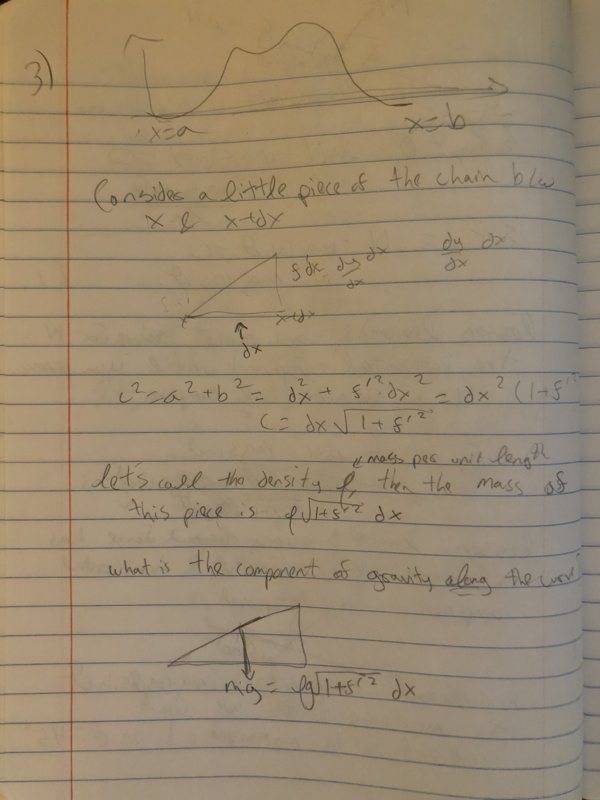 3)
x=a
x=b
Consider a little piece of the chain b/w
x & x+dx
f'dx = dy/dx dx dy/dx dx
x x+dx
dx
c²=a²+b² = dx² + f'²dx² = dx² (1+f'²
c = dx √1+f'²
mass per unit length
let's call the density ρ, then the mass of
this piece is ρ√1+f'² dx
what is the component of gravity along the curve
mg = ρg√1+f'² dx